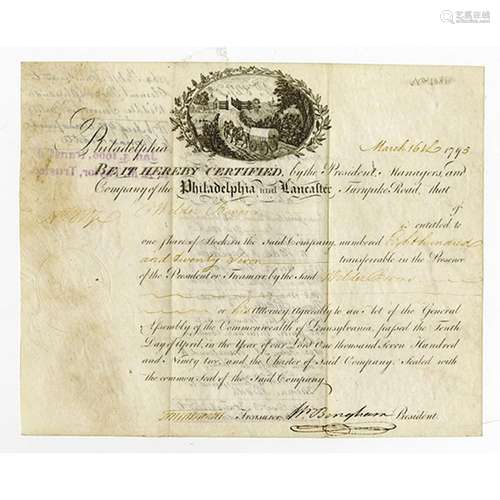 Philadelphia March 16th 1795
BE IT HEREBY CERTIFIED, by the President, Managers, and
Company of the Philadelphia and Lancaster Turnpike Road, that
of
entitled to
one Share of Stock in the Said Company, numbered Eight hundred
and twenty transferrable in the Presence
of the President or Treasurer, by the Said
or his Attorney, Agreeably to an Act of the General
Assembly of the Commonwealth of Pennsylvania, passed the Tenth
Day of April, in the Year of our Lord One thousand Seven Hundred
and Ninety two, and the Charter of Said Company; Sealed with
the common Seal of the Said Company
Treasurer Wm Bingham President